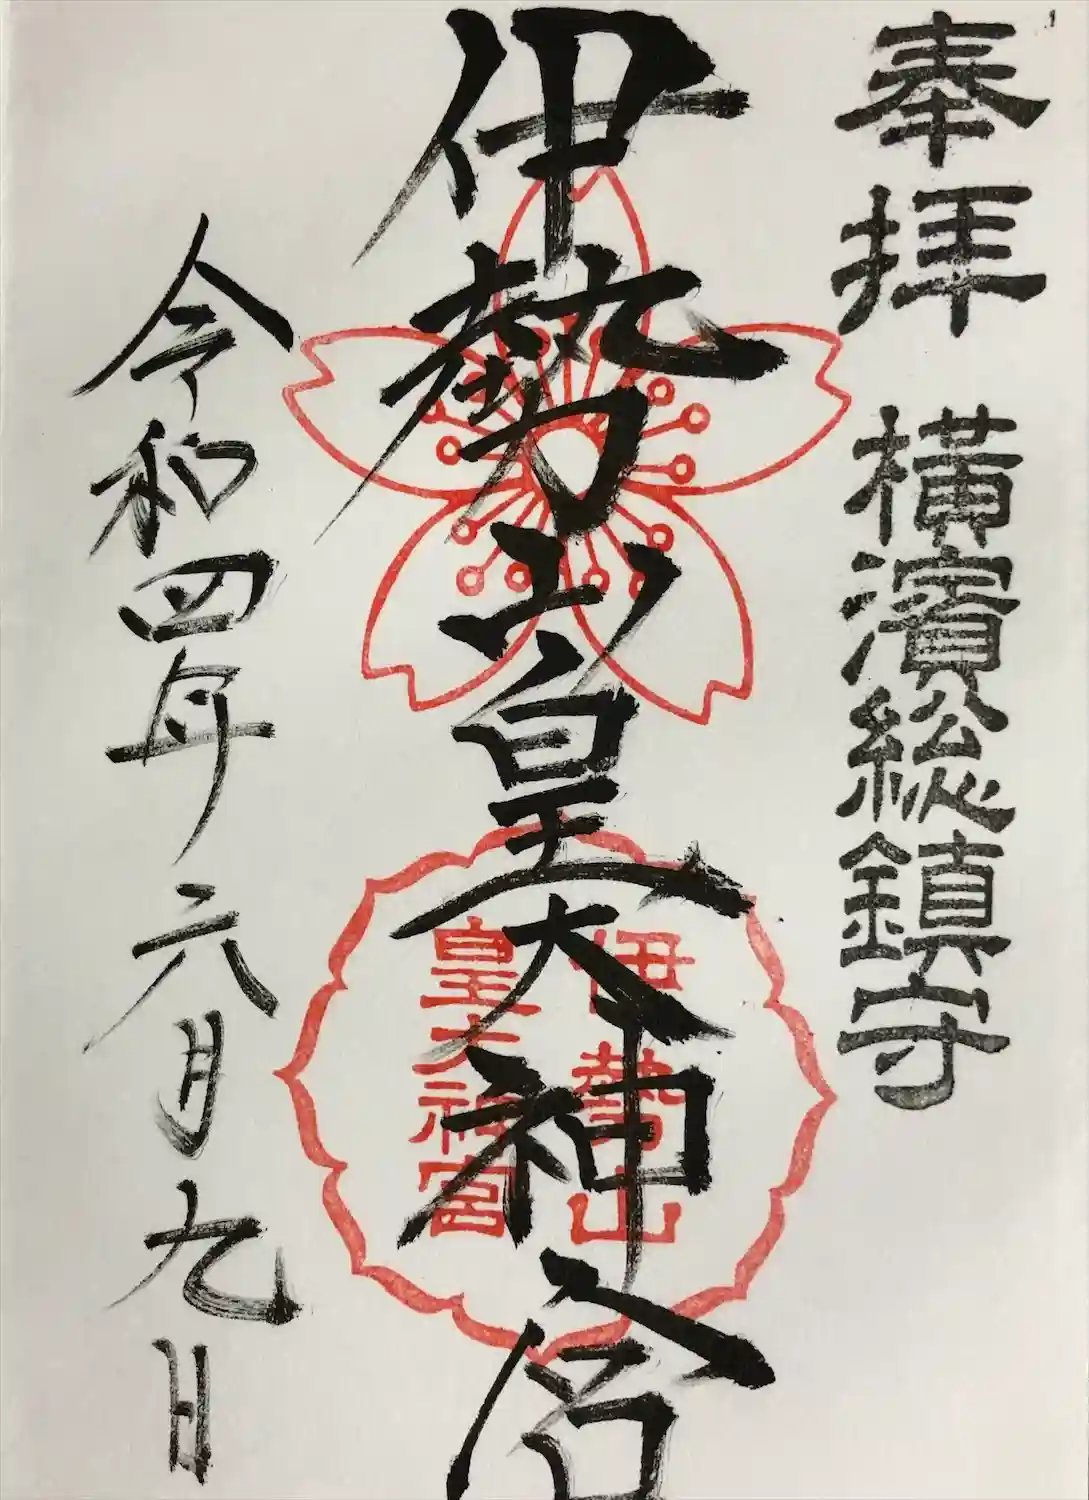 奉拝 横濱総鎮守
伊勢山皇大神宮
伊勢山
皇大神宮
令和四年六月九日